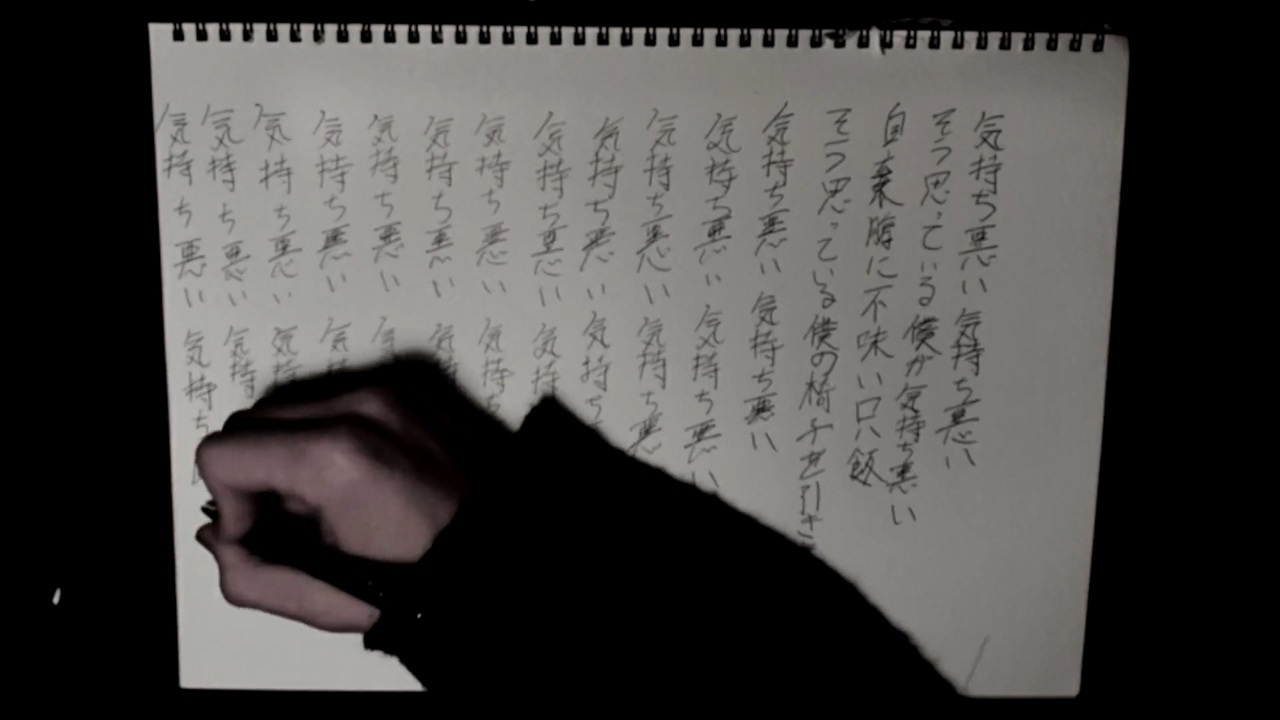 気持ち悪い 気持ち悪い
そう思っている僕が気持ち悪い
自棄腹に不味い 飯
そう思っている僕の椅子を引き
気持ち悪い 気持ち悪い
気持ち悪い 気持ち悪い
気持ち悪い 気持ち悪
気持ち悪い 気持ち
気持ち悪い 気持
気持ち悪い 気持
気持ち悪い 気
気持ち悪い
気持ち悪い 気
気持ち悪い 気
気持ち悪い 気持
気持ち悪い 気持ち